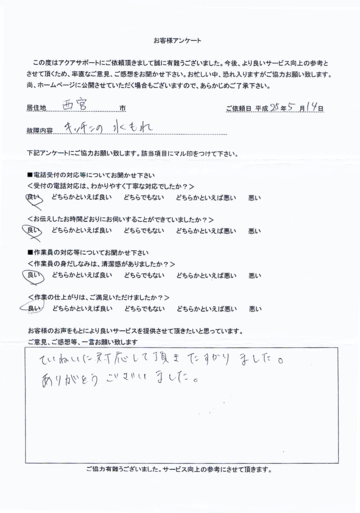 お客様アンケート
この度はアクアサポートにご依頼頂きまして誠に有難うございました。今後、より良いサービス向上の参考と
させて頂くため、率直なご意見、ご感想をお聞かせ下さい。お忙しい中、恐れ入りますがご協力お願い致します。
尚、ホームページに公開させていただく場合もございますので、あらかじめご了承下さい。
居住地 西宮 市 ご依頼日 平成 28年 5月 14日
故障内容 キッチンの水もれ
下記アンケートにご協力お願い致します。該当項目にマル印をつけて下さい。
■電話受付の対応等についてお聞かせ下さい
<受付の電話対応は、わかりやすく丁寧な対応でしたか？>
良い どちらかといえば良い どちらでもない どちらかといえば悪い 悪い
<お伝えしたお時間どおりにお伺いすることができていましたか？>
良い どちらかといえば良い どちらでもない どちらかといえば悪い 悪い
■作業員の対応等についてお聞かせ下さい
<作業員の身だしなみは、清潔感がありましたか？>
良い どちらかといえば良い どちらでもない どちらかといえば悪い 悪い
<作業の仕上がりは、ご満足いただけましたか？>
良い どちらかといえば良い どちらでもない どちらかといえば悪い 悪い
お客様のお声をもとにより良いサービスを提供させて頂きたいと思っています。
ご意見、ご感想等、一言お願い致します
ていねいに対応して頂きたすかりました。
ありがとうございました。
ご協力有難うございました。サービス向上の参考にさせて頂きます。